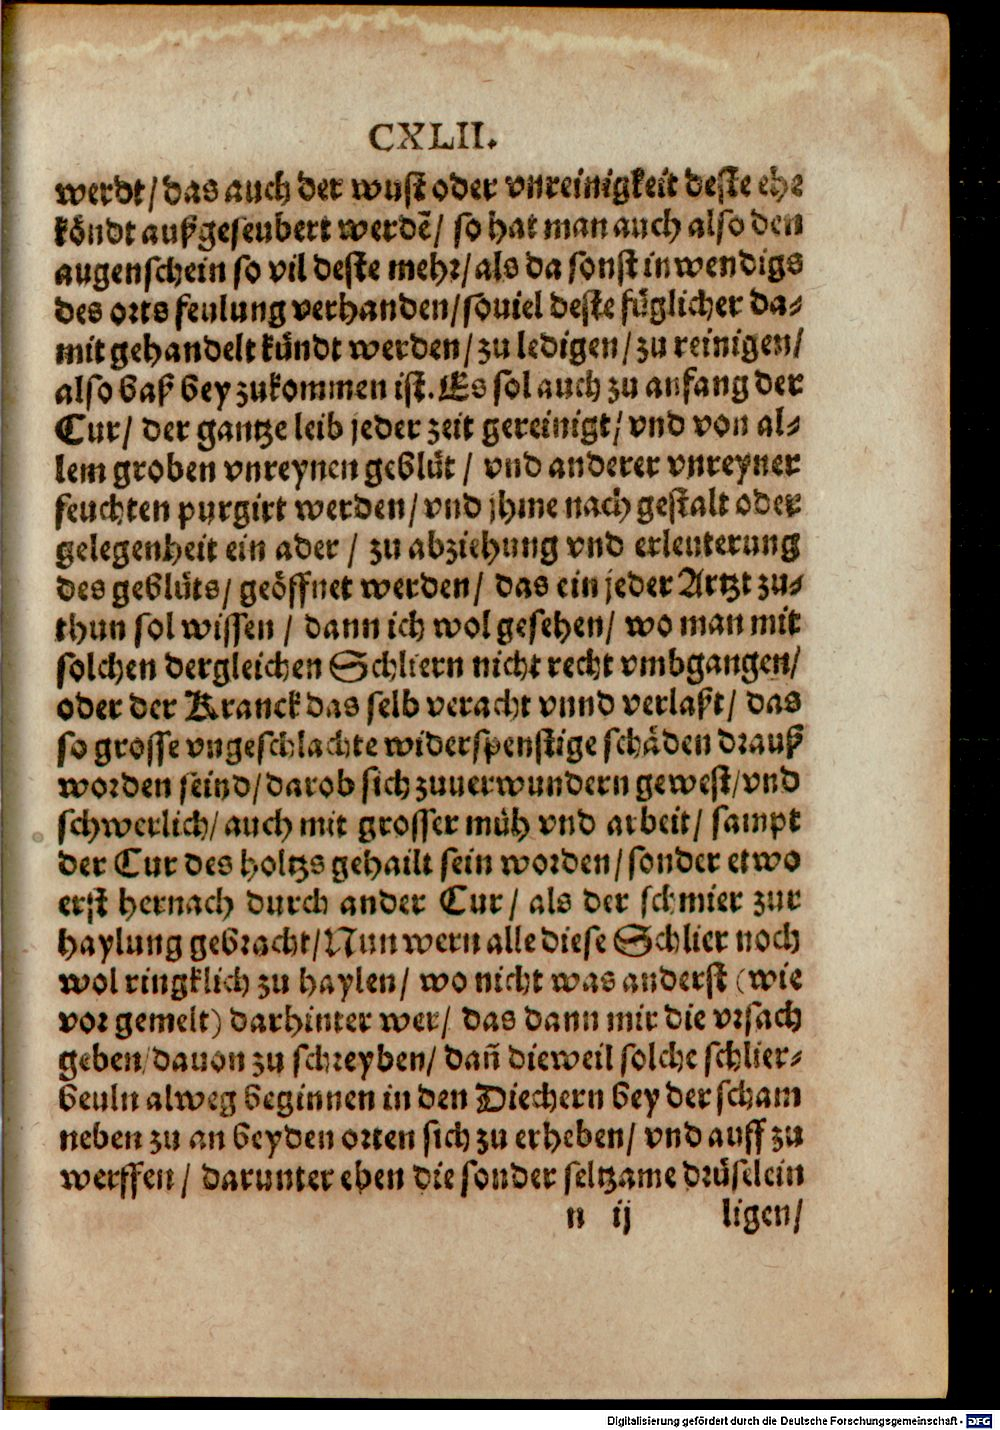 CXLII.
werdt/ das auch der wust oder vnreinigkeit deste ehe
köndt außgeseubert werdē/ so hat man auch also den
augenschein so vil deste mehr/ als da sonst inwendigs
des orts feulung verhanden/ souiel deste füglicher da⸗
mit gehandelt kündt werden/ zu ledigen/ zu reinigen/
also baß bey zukommen ist. Es sol auch zu anfang der
Cur/ der gantze leib jeder zeit gereinigt/ vnd von al⸗
lem groben vnreynen geblüt / vnd anderer vnreyner
feuchten purgirt werden/ vnd jhme nach gestalt oder
gelegenheit ein ader / zu abziehung vnd erleuterung
des geblüts/ geöffnet werden/ das ein jeder Artzt zu⸗
thun sol wissen / dann ich wol gesehen/ wo man mit
solchen dergleichen Schliern nicht recht vmbgangen/
oder der Kranck das selb veracht vnnd verlaßt/ das
so grosse vngeschlachte widerspenstige schäden drauß
worden seind/ darob sich zuuerwundern gewest/ vnd
schwerlich/ auch mit grosser müh vnd arbeit/ sampt
der Cur des holtzs gehailt sein worden/ sonder etwo
erst hernach durch ander Cur/ als der schmier zur
haylung gebracht/ Nun wern alle diese Schlier noch
wol ringklich zu haylen/ wo nicht was anderst (wie
vor gemelt) darhinter wer/ das dann mir die vrsach
geben/ dauon zu schreyben/ dañ dieweil solche schlier⸗
beuln alweg beginnen in den Diechern bey der scham
neben zu an beyden orten sich zu erheben/ vnd auff zu
werffen/ darunter eben die sonder seltzame drüselein
n ij ligen/
Digitalisierung gefördert durch die Deutsche Forschungsgemeinschaft - DFG